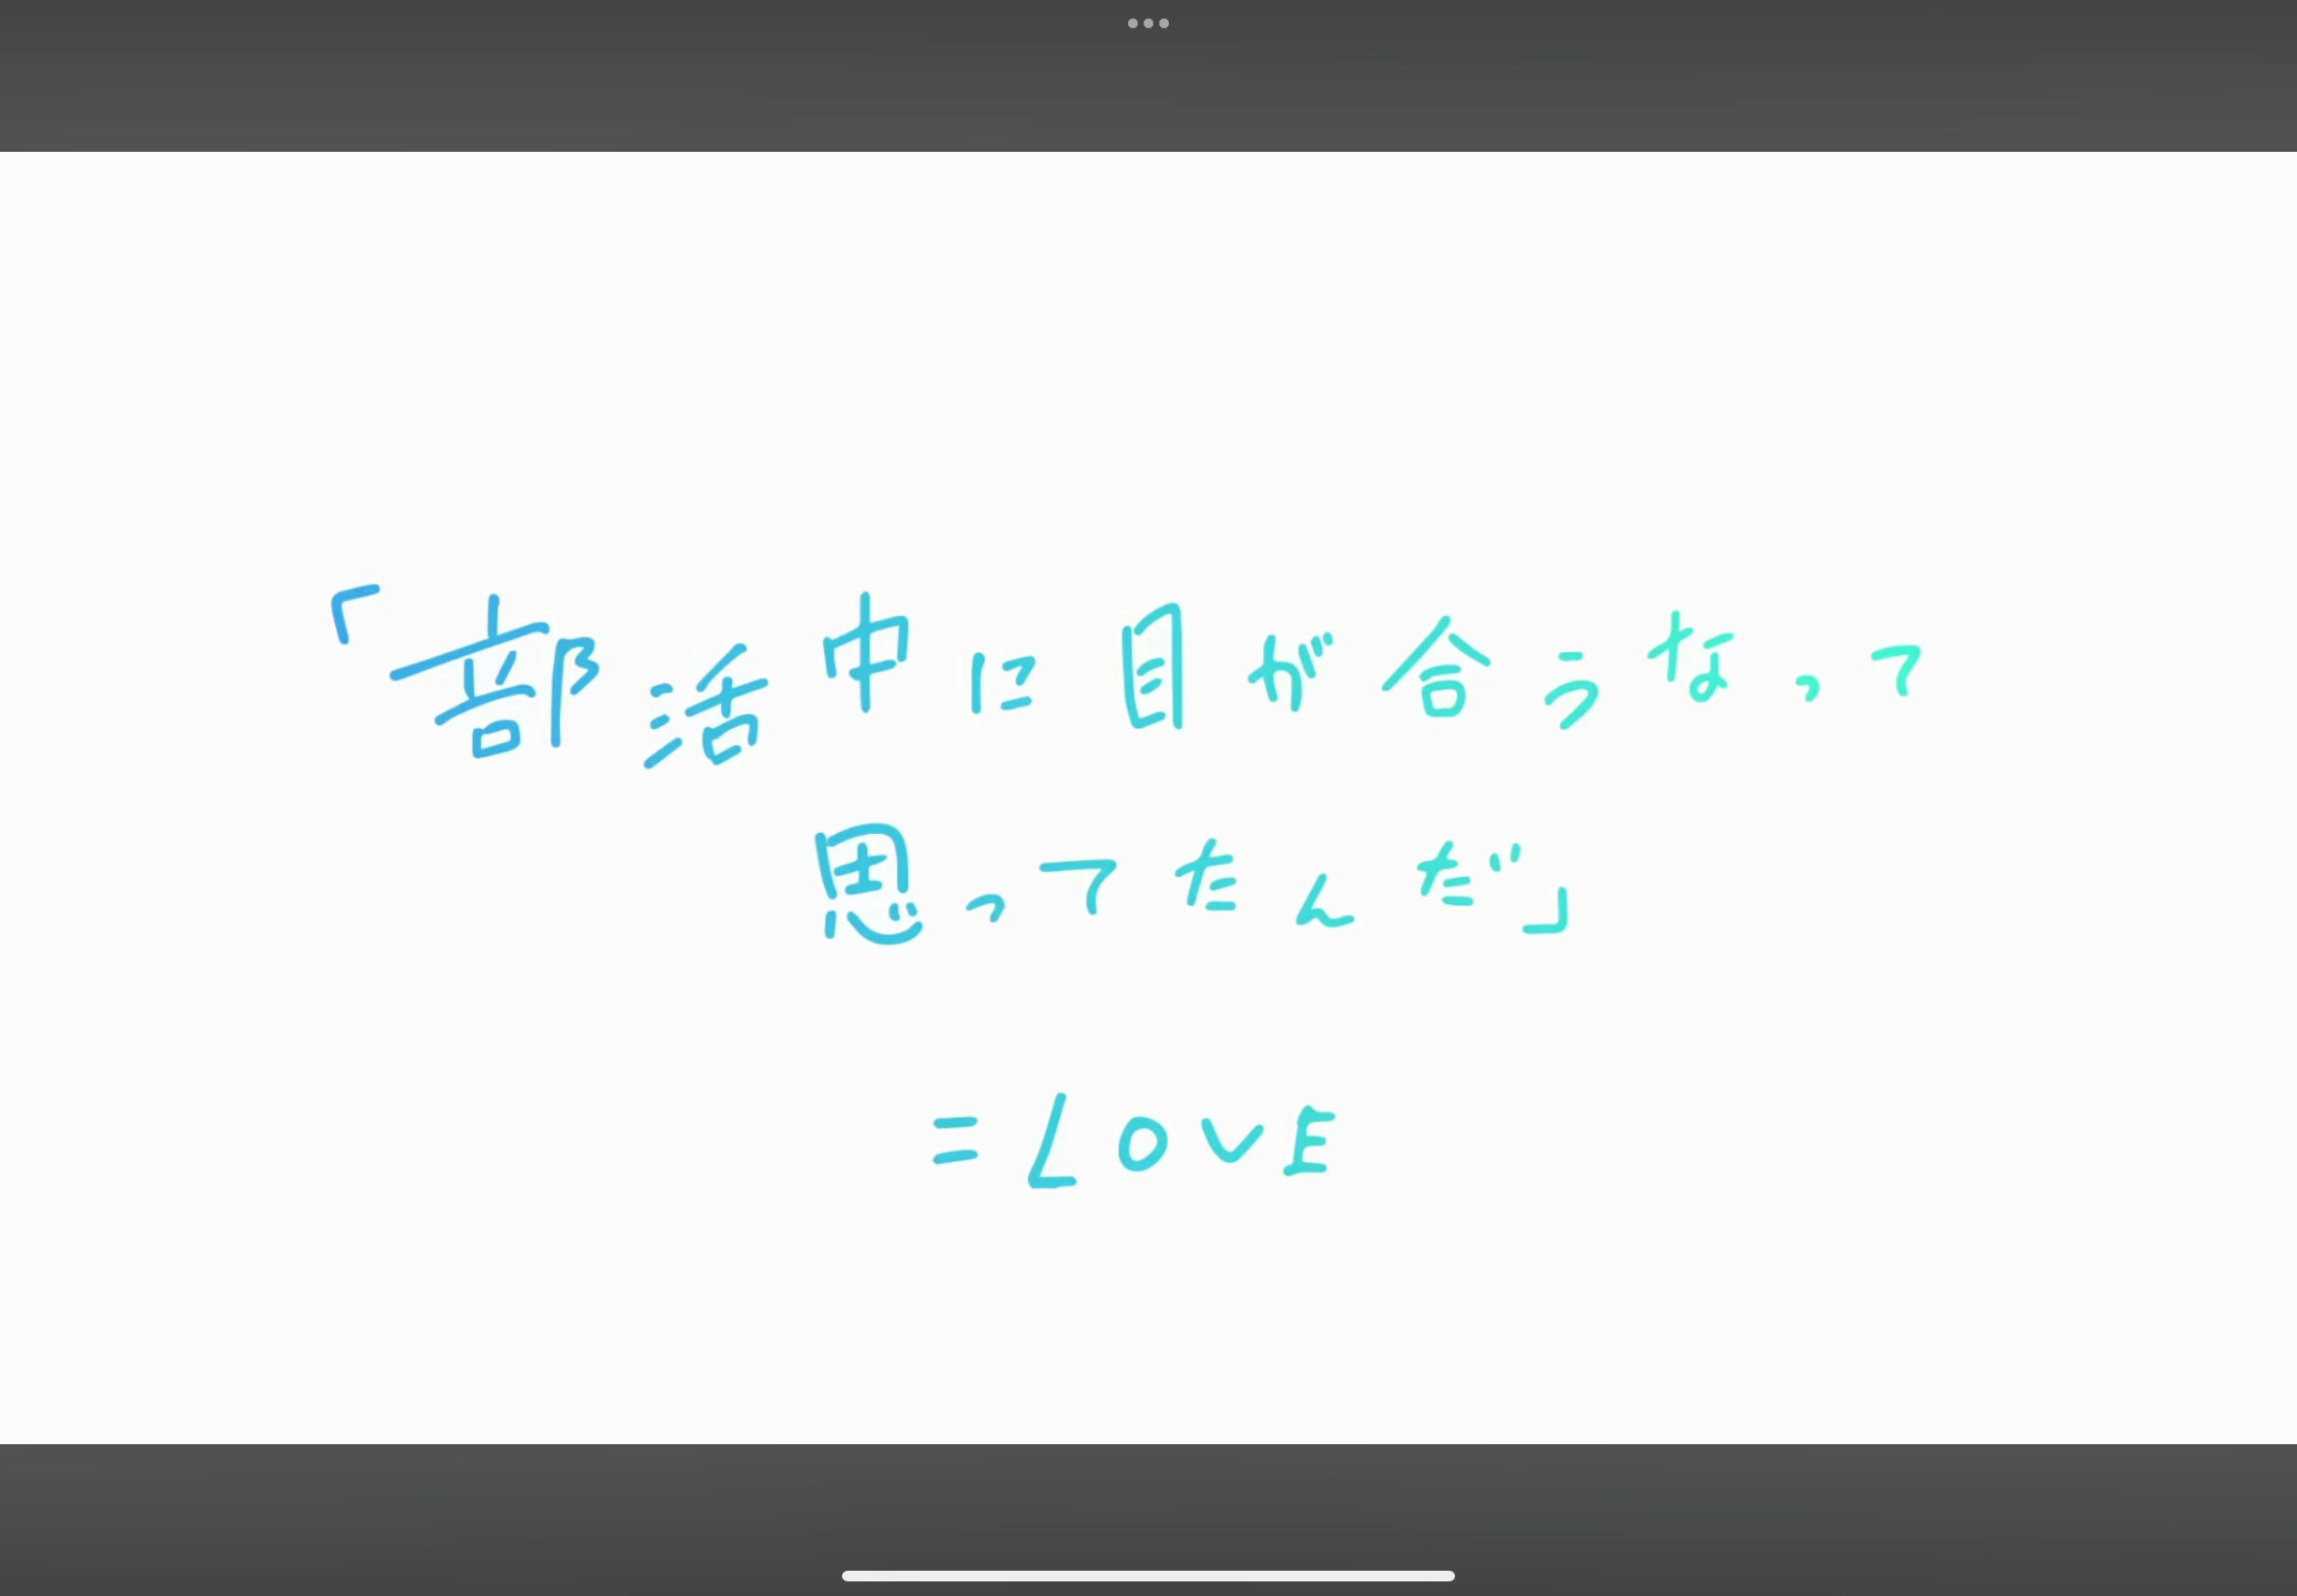 「部活中に目が合うなって
思ってたんだ」
=LOVE